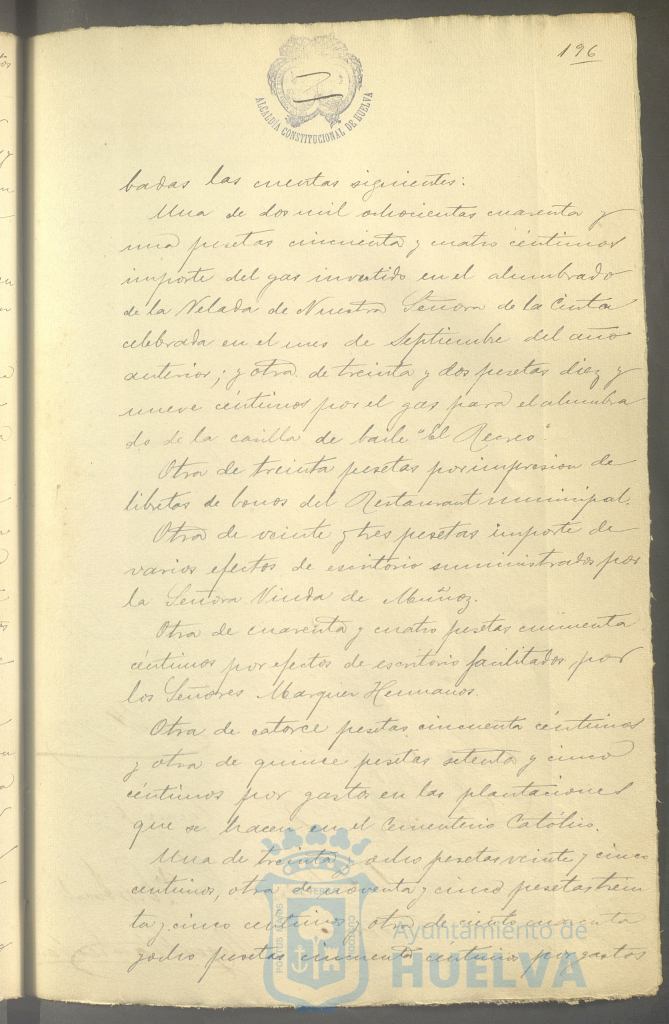 196
ALCALDÍA CONSTITUCIONAL DE HUELVA
badas las cuentas siguientes:
Una de dos mil ochocientas cuarenta y
una pesetas cincuenta y cuatro céntimos
importe del gas invertido en el alumbrado
de la Velada de Nuestra Señora de la Cinta
celebrada en el mes de Septiembre del año
anterior; y otra de treinta y dos pesetas diez y
nueve céntimos por el gas para el alumbra
do de la casilla de baile "El Recreo".
Otra de treinta pesetas por impresion de
libretas de bonos del Restaurant municipal.
Otra de veinte y tres pesetas importe de
varios efectos de escritorio suministrados por
la Señora Viuda de Muñoz.
Otra de cuarenta y cuatro pesetas cincuenta
céntimos por efectos de escritorio facilitados por
los Señores Marquier Hermanos.
Otra de catorce pesetas cincuenta céntimos
y otra de quince pesetas setenta y cinco
céntimos por gastos en las plantaciones
que se hacen en el Cementerio Católico.
Una de treinta y ocho pesetas veinte y cinco
centimos, otra de noventa y cinco pesetas trein
ta y cinco centimos y otra de ciento cuarenta
y ocho pesetas cincuenta céntimos por gastos
Ayuntamiento de
HUELVA